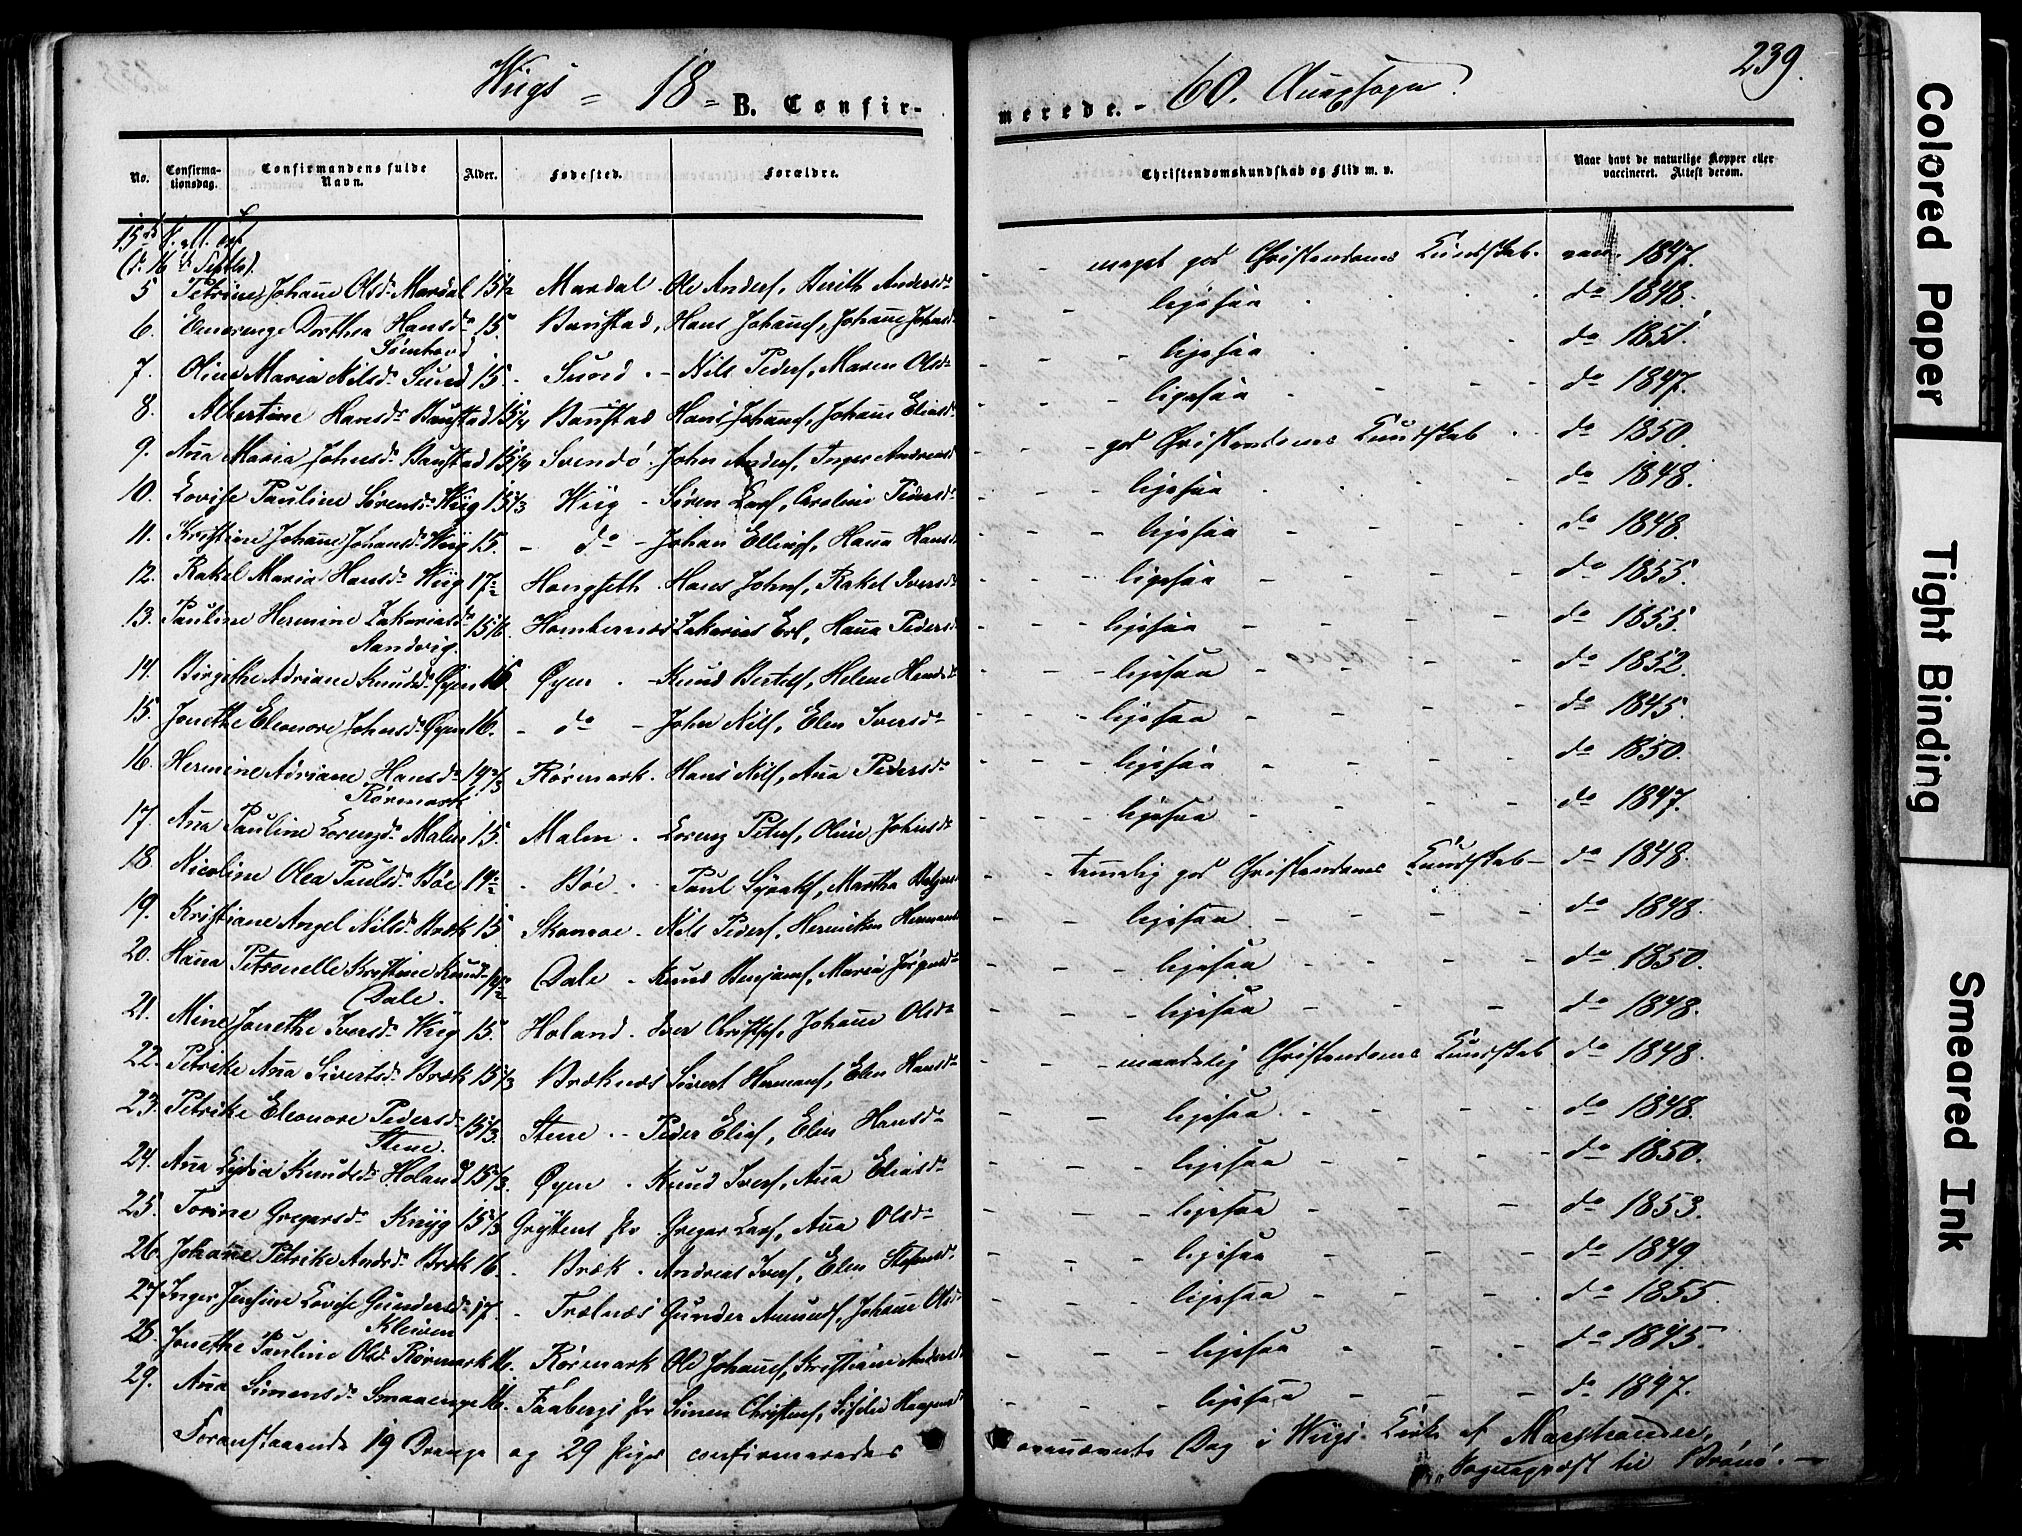 Wiigs = 18 = B. Confir-
merede. - 60. Annexsogn.
239.
No.
Confirma-
tionsdag.
Confirmandens fulde
Navn.
Alder.
Fødested.
Forældre.
Christendomskundskab og Flid m. v.
Naar havt de naturlige Kopper eller
vaccineret. Attest derom.
15de S. e. Trf.
(d. 16de Septbr).
5 Petrine Johane Olsd. Mardal 15½ Mardal Ole Anders., Berith Andersdr - - meget god Christendoms Kundskab. vacc. 1847.
6. Emerenze Dorthea Hansdr 15. Baustad, Hans Johans., Johane Johnsdr ligesaa do 1848.
Sømhovd
7. Oline Maria Nilsdr Sund 15. Sund - Nils Peders., Maren Olsdr ligesaa do 1851.
8. Albertine Hansdr Baustad 15¼ Baustad Hans Johans., Johane Eliasdr ligesaa do 1847.
9. Ana Maria Johnsdr Baustad 15¼ Svendö. John Anders., Inger Andreasd god Christendoms Kundskab do 1850.
10. Lovise Pauline Sörensdr Wiig 15⅓ Wiig - Sören Lars., Caroline Pedersdr ligesaa do 1848.
11. Kristine Johane Johansdr Wiig 15. - do - Johan Ellings., Hana Hansdr ligesaa do 1848.
12. Rakel Maria Hansdr Wiig 17½ Hongseth. Hans Johns., Rakel Iversdr ligesaa do 1855.
13. Pauline Hermine Zakariasdr 15½. Hombernæs Zakarias Erl., Hana Pedersdr ligesaa do 1855.
Aandvig.
14. Birgithe Adriane Knudsdr Øyen 16. Øyen. - Knud Bertels., Helene Hansdr ligesaa do 1852.
15. Jonethe Eleonore Johnsdr Øyen 16. - do - John Nils., Elen Iversdr ligesaa do 1845.
16. Hermine Adriane Hansdr 14⅔ Rörmark. Hans Nils., Ana Pedersdr ligesaa do 1850.
Rörmark
17. Ana Pauline Lorenzdr Malm 15. Malm. Lorenz Peters., Oline Johnsdr ligesaa do 1847.
18. Nicoline Olea Paulsdr Böe 14½ - Böe. Paul Isaaks., Martha Holgersdr temelig god Christendoms Kundskab - do 1848.
19. Kristiane Angel Nilsdr Bræk 15. Skomoe. Nils Peders., Hermikken Hermansd ligesaa do 1848.
20. Hana Petronelle Kristine Knudsdr 14½ Dale. Knud Benjams., Maria Jörgensdr ligesaa do 1850.
Dale.
21. Mine Jonethe Iversdr Wiig 15. Holand. Iver Christophs., Johane Olsdr ligesaa do 1848.
22. Petrike Ana Sivertsdr Bræk 15⅓ Bræknæs Sivert Hermans., Elen Hansdr maadelig Christendoms Kundskab do 1848.
23. Petrike Eleonore Pedersdr 15⅓. Stene. - Peder Elias., Elen Hansdr ligesaa do 1848.
Stene.
24. Ana Lydia Knudsdr Holand 15⅓. Øyen. Knud Ivers., Ana Eliasdr ligesaa do 1850.
25. Torine Gregersdr Knyg 15⅔ Gryttens Pr Greger Lars., Ana Olsdr ligesaa do 1853.
26. Johanne Petrike Andrdr Bræk 16. Bræk. Andreas Ivers., Elen Stephensdr ligesaa do 1849.
27. Inger Jensine Lovise Gundersdr 17. - Trælnæs Gunder Amunds., Johane Olsdr ligesaa do 1855.
Kleiven
28. Jonethe Pauline Olsdr Rörmark 16. Rörmark Ole Johans., Kristiane Andersdr ligesaa do 1845.
29. Ana Simensdr Smaaenge 16. Faabergs Pr Simen Christens., Sidselie Haagensd ligesaa do 1847.
Foranstaaende 19 Drenge og 29 Piger confirmeredes
ovennævnte Dag i Wiigs Kirke af Marstrander,
Sognepræst til Brönö. -
Colored Paper
Tight Binding
Smeared Ink